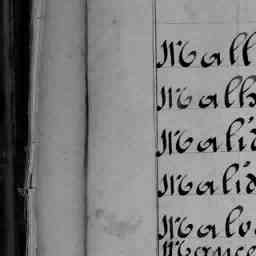 Mall
Malh
Malic
Malic
Malv
Mance